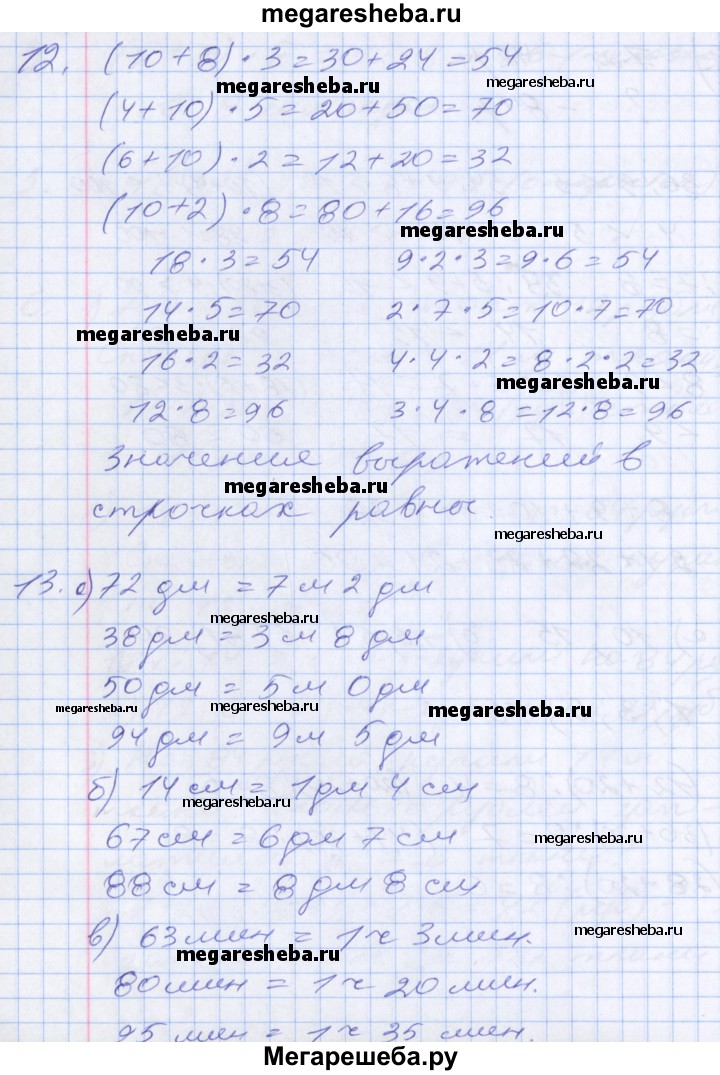 megaresheba.ru
12. (10+8)·3=30+24=54
megaresheba.ru megaresheba.ru
(4+10)·5=20+50=70
megaresheba.ru
(6+10)·2=12+20=32
(10+2)·8=80+16=96
megaresheba.ru
18·3=54 9·2·3=9·6=54
14·5=70 2·7·5=10·7=70
megaresheba.ru
16·2=32 4·4·2=8·2·2=32
megaresheba.ru
12·8=96 3·4·8=12·8=96
Значения выражений в
megaresheba.ru
строчках равны.
megaresheba.ru
13. а) 72 дм = 7 м 2 дм
megaresheba.ru
38 дм = 3 м 8 дм
50 дм = 5 м 0 дм
megaresheba.ru megaresheba.ru megaresheba.ru
94 дм = 9 м 5 дм
б) 14 см = 1 дм 4 см
megaresheba.ru
67 см = 6 дм 7 см
megaresheba.ru
88 см = 8 дм 8 см
megaresheba.ru
в) 63 мин = 1 ч 3 мин.
megaresheba.ru
80 мин = 1 ч 20 мин.
95 мин = 1 ч 35 мин.
Мегарешеба.ру